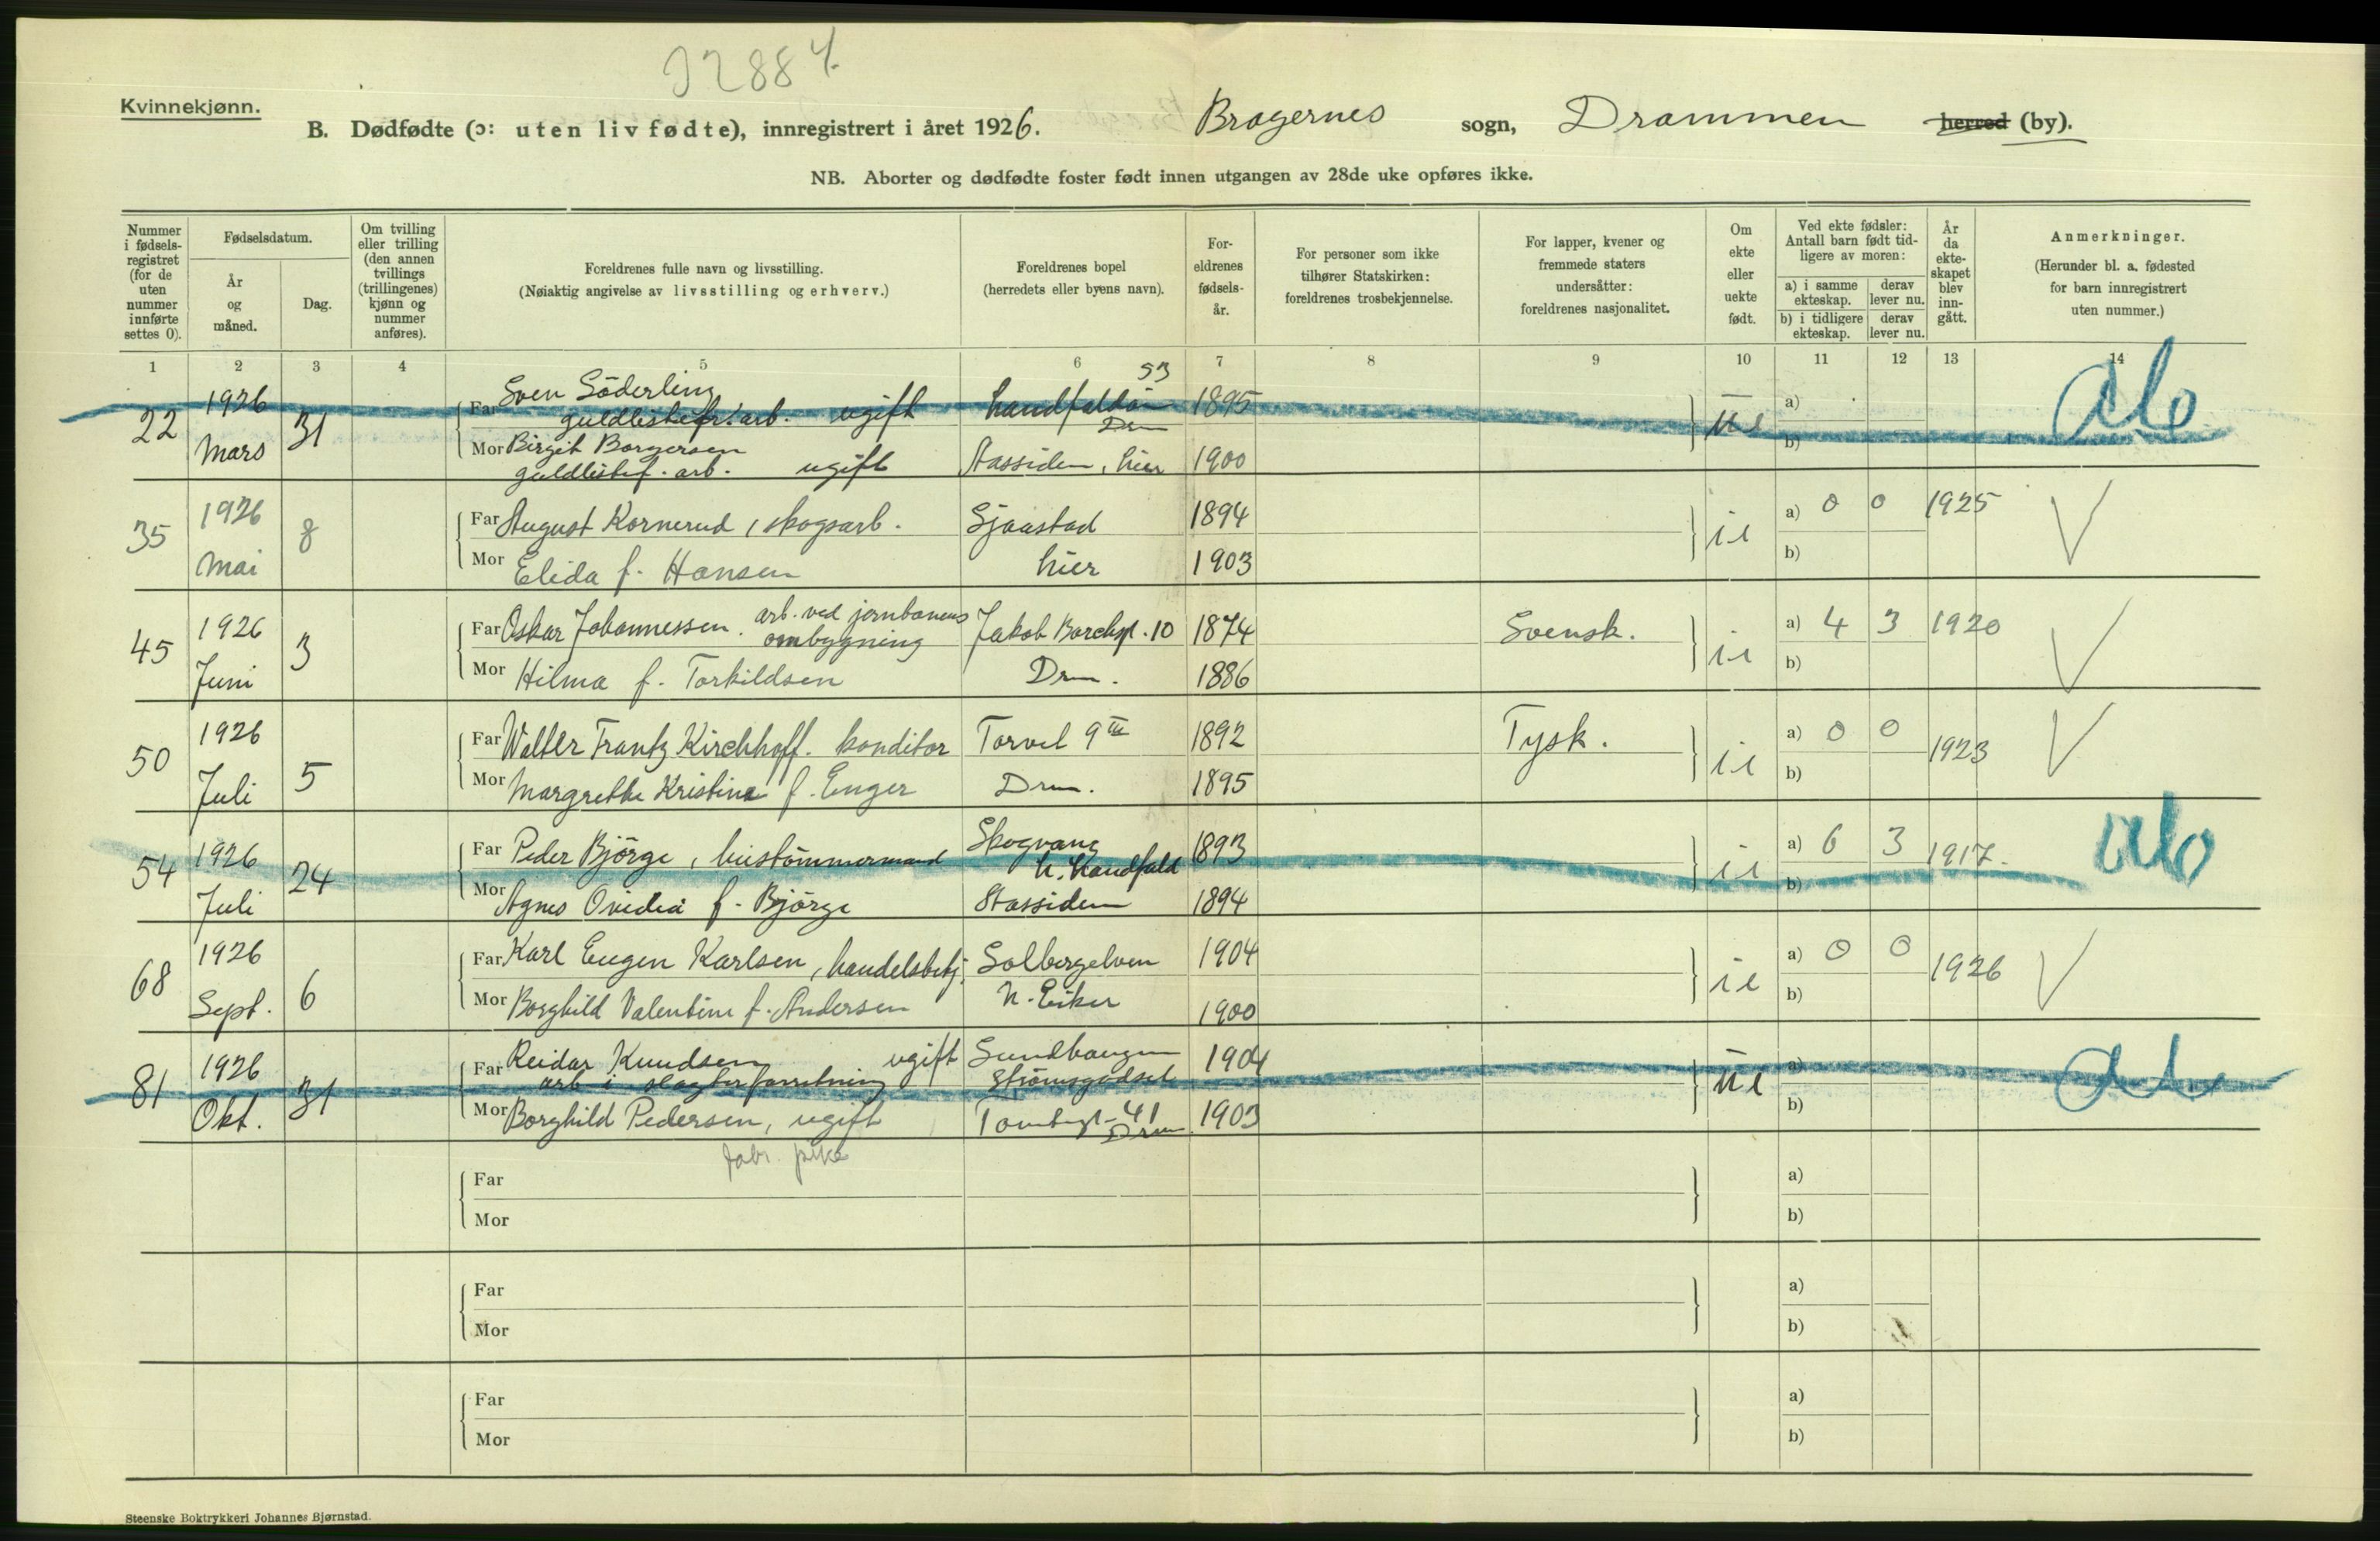 J2884.
Kvinnekjønn.
B. Dødfødte (ɔ: uten liv fødte), innregistrert i året 1926. Bragernes sogn, Drammen herred (by).
NB. Aborter og dødfødte foster født innen utgangen av 28de uke opføres ikke.
Nummer i fødsels-registret (for de uten nummer innførte settes 0).
Fødselsdatum.
År og måned.
Dag.
Om tvilling eller trilling (den annen tvillings (trillingenes) kjønn og nummer anføres).
Foreldrenes fulle navn og livsstilling.
(Nøiaktig angivelse av livsstilling og erhverv.)
Foreldrenes bopel
(herredets eller byens navn).
For-eldrenes fødsels-år.
For personer som ikke tilhører Statskirken: foreldrenes trosbekjennelse.
For lapper, kvener og fremmede staters undersåtter: foreldrenes nasjonalitet.
Om ekte eller uekte født.
Ved ekte fødsler: Antall barn født tid-ligere av moren:
a) i samme ekteskap. derav lever nu.
b) i tidligere ekteskap. derav lever nu.
År da ekte-skapet blev inn-gått.
Anmerkninger.
(Herunder bl. a. fødested for barn innregistrert uten nummer.)
1 2 3 4 5 6 7 8 9 10 11 12 13 14
22 1926 Mars 31
Far Sven Söderling 53
guldlistefr. arb. ugift 1895 a)
Drm
Mor Birgit Borgersen b)
guldlistef. arb. ugift Aassiden, hier 1900
35 1926 Mai 8
Far August Kornerud, skogsarb. Sjaastad 1894 a) 0 0 1925
Mor Elida f. Hansen hier 1903 b)
45 1926 Juni 3
Far Oskar Johannessen. arb. ved jernbanens ombygning Jakob Borchsgt. 10 1874 Svensk. a) 4 3 1920
Mor Hilma f. Torkildsen Drm. 1886 b)
50 1926 Juli 5
Far Walter Frantz Kirchhoff. konditor Torvet 9 III 1892 Tysk. a) 0 0 1923
Mor Margrethe Kristine f. Enger Drm. 1895 b)
54 1926 Juli 24
Far Peder Björge, hustömmermand Skogvang 1893 a) 6 3 1917.
Mor Agnes Ovidia f. Björge Aassiden 1894 b)
68 1926 Sept. 6
Far Karl Eugen Karlsen, handelsbetj. Solbergelven 1904 a) 0 0 1926
Mor Borghild Valentine f. Andersen N. Eiker 1900 b)
81 1926 Okt. 31
Far Reidar Knudsen ugift Sundhaugen 1904 a)
arb. i slagterforretning Strömsgodset
Mor Borghild Pedersen, ugift Tomtegt. 41 Drm 1903 b)
fabr. pike
Far a)
Mor b)
Far a)
Mor b)
Far a)
Mor b)
Steenske Boktrykkeri Johannes Bjørnstad.